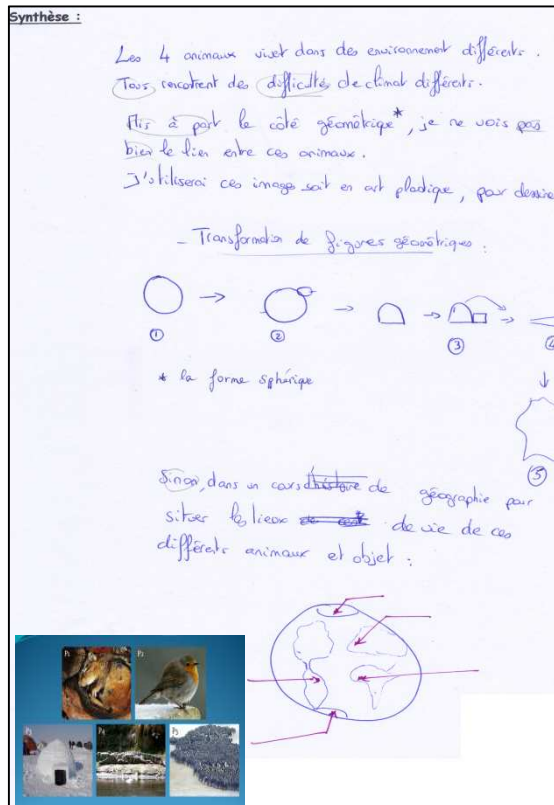 Synthèse :
Les 4 animaux vivet dans des environnement différents.
Tous rencotrent des difficultés de climat différents.
Mis à part le côté géométrique*, je ne vois pas
bien le lien entre ces animaux.
J'utiliserai ces images soit en art plastique, pour dessine
- Transformation de figures géométriques :
① ② ③ ④
* la forme sphérique
⑤
Sinon, dans un cours de géographie pour
situer les lieux de vie de ces
différents animaux et objet :
P1 P2
P3 P4 P5